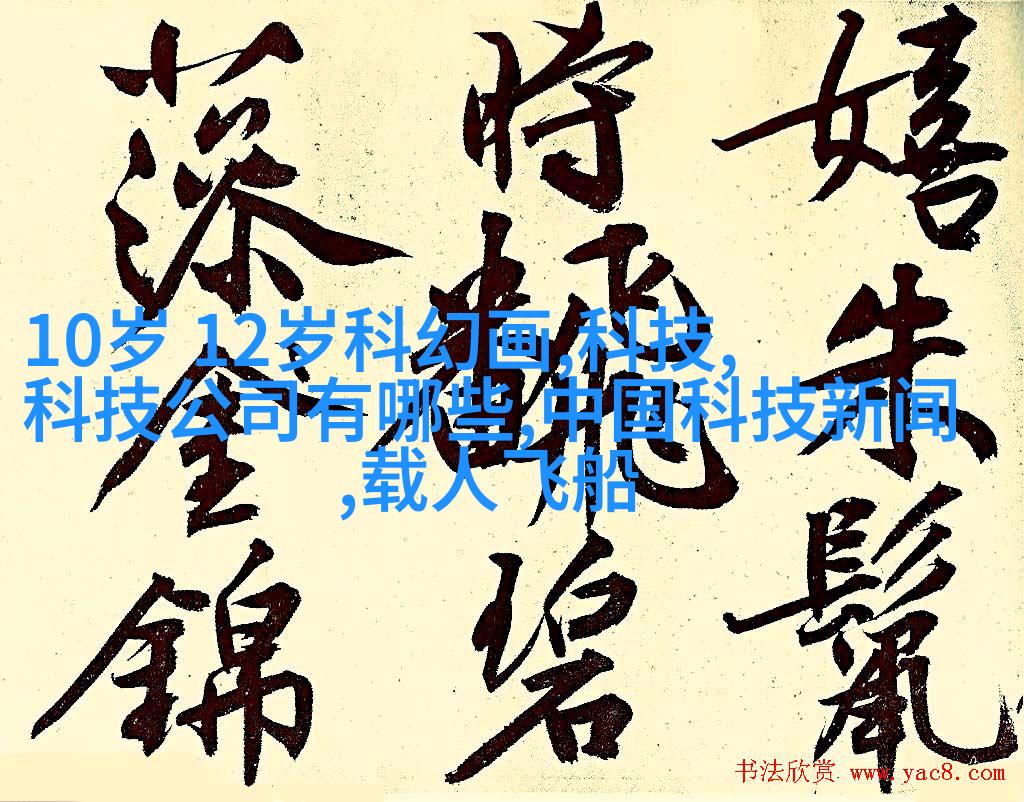 嬉朱鬣
時翻碧
藻全錦
10岁 12岁科幻画,科技,
科技公司有哪些,中国科技新闻
,载人飞船
书法欣赏 www.yac8.com